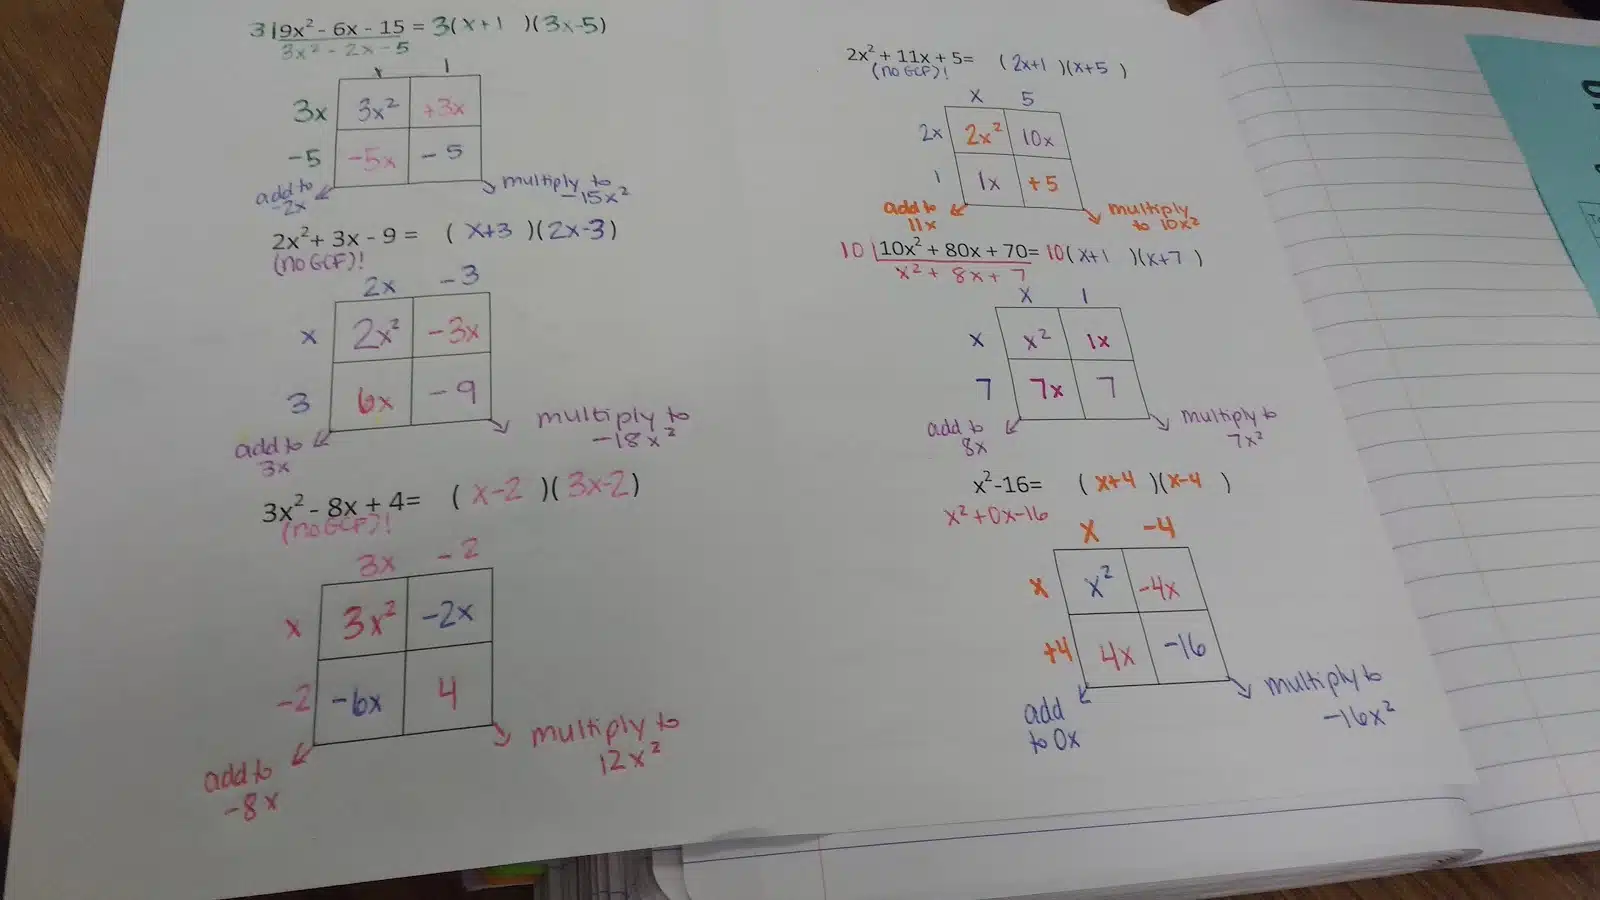 3 9x² - 6x - 15 = 3(x+1 )(3x-5)
3x² - 2x - 5
x 1
3x 3x² +3x
-5 -5x -5
add to
-2x
multiply to
-15x²
2x² + 3x - 9 = ( x+3 )(2x-3)
(no GCF)!
2x -3
x 2x² -3x
3 6x -9
add to
3x
multiply to
-18x²
3x² - 8x + 4= ( x-2 )( 3x-2)
(no GCF)!
3x -2
x 3x² -2x
-2 -6x 4
add to
-8x
multiply to
12x²
2x² + 11x + 5= ( 2x+1 )(x+5 )
(no GCF)!
x 5
2x 2x² 10x
1 1x +5
add to
11x
multiply
to 10x²
10 10x² + 80x + 70= 10(x+1 )(x+7 )
x² + 8x + 7
x 1
x x² 1x
7 7x 7
add to
8x
multiply to
7x²
x²-16= ( x+4 )(x-4 )
x²+0x-16
x -4
x x² -4x
+4 4x -16
add
to 0x
multiply to
-16x²